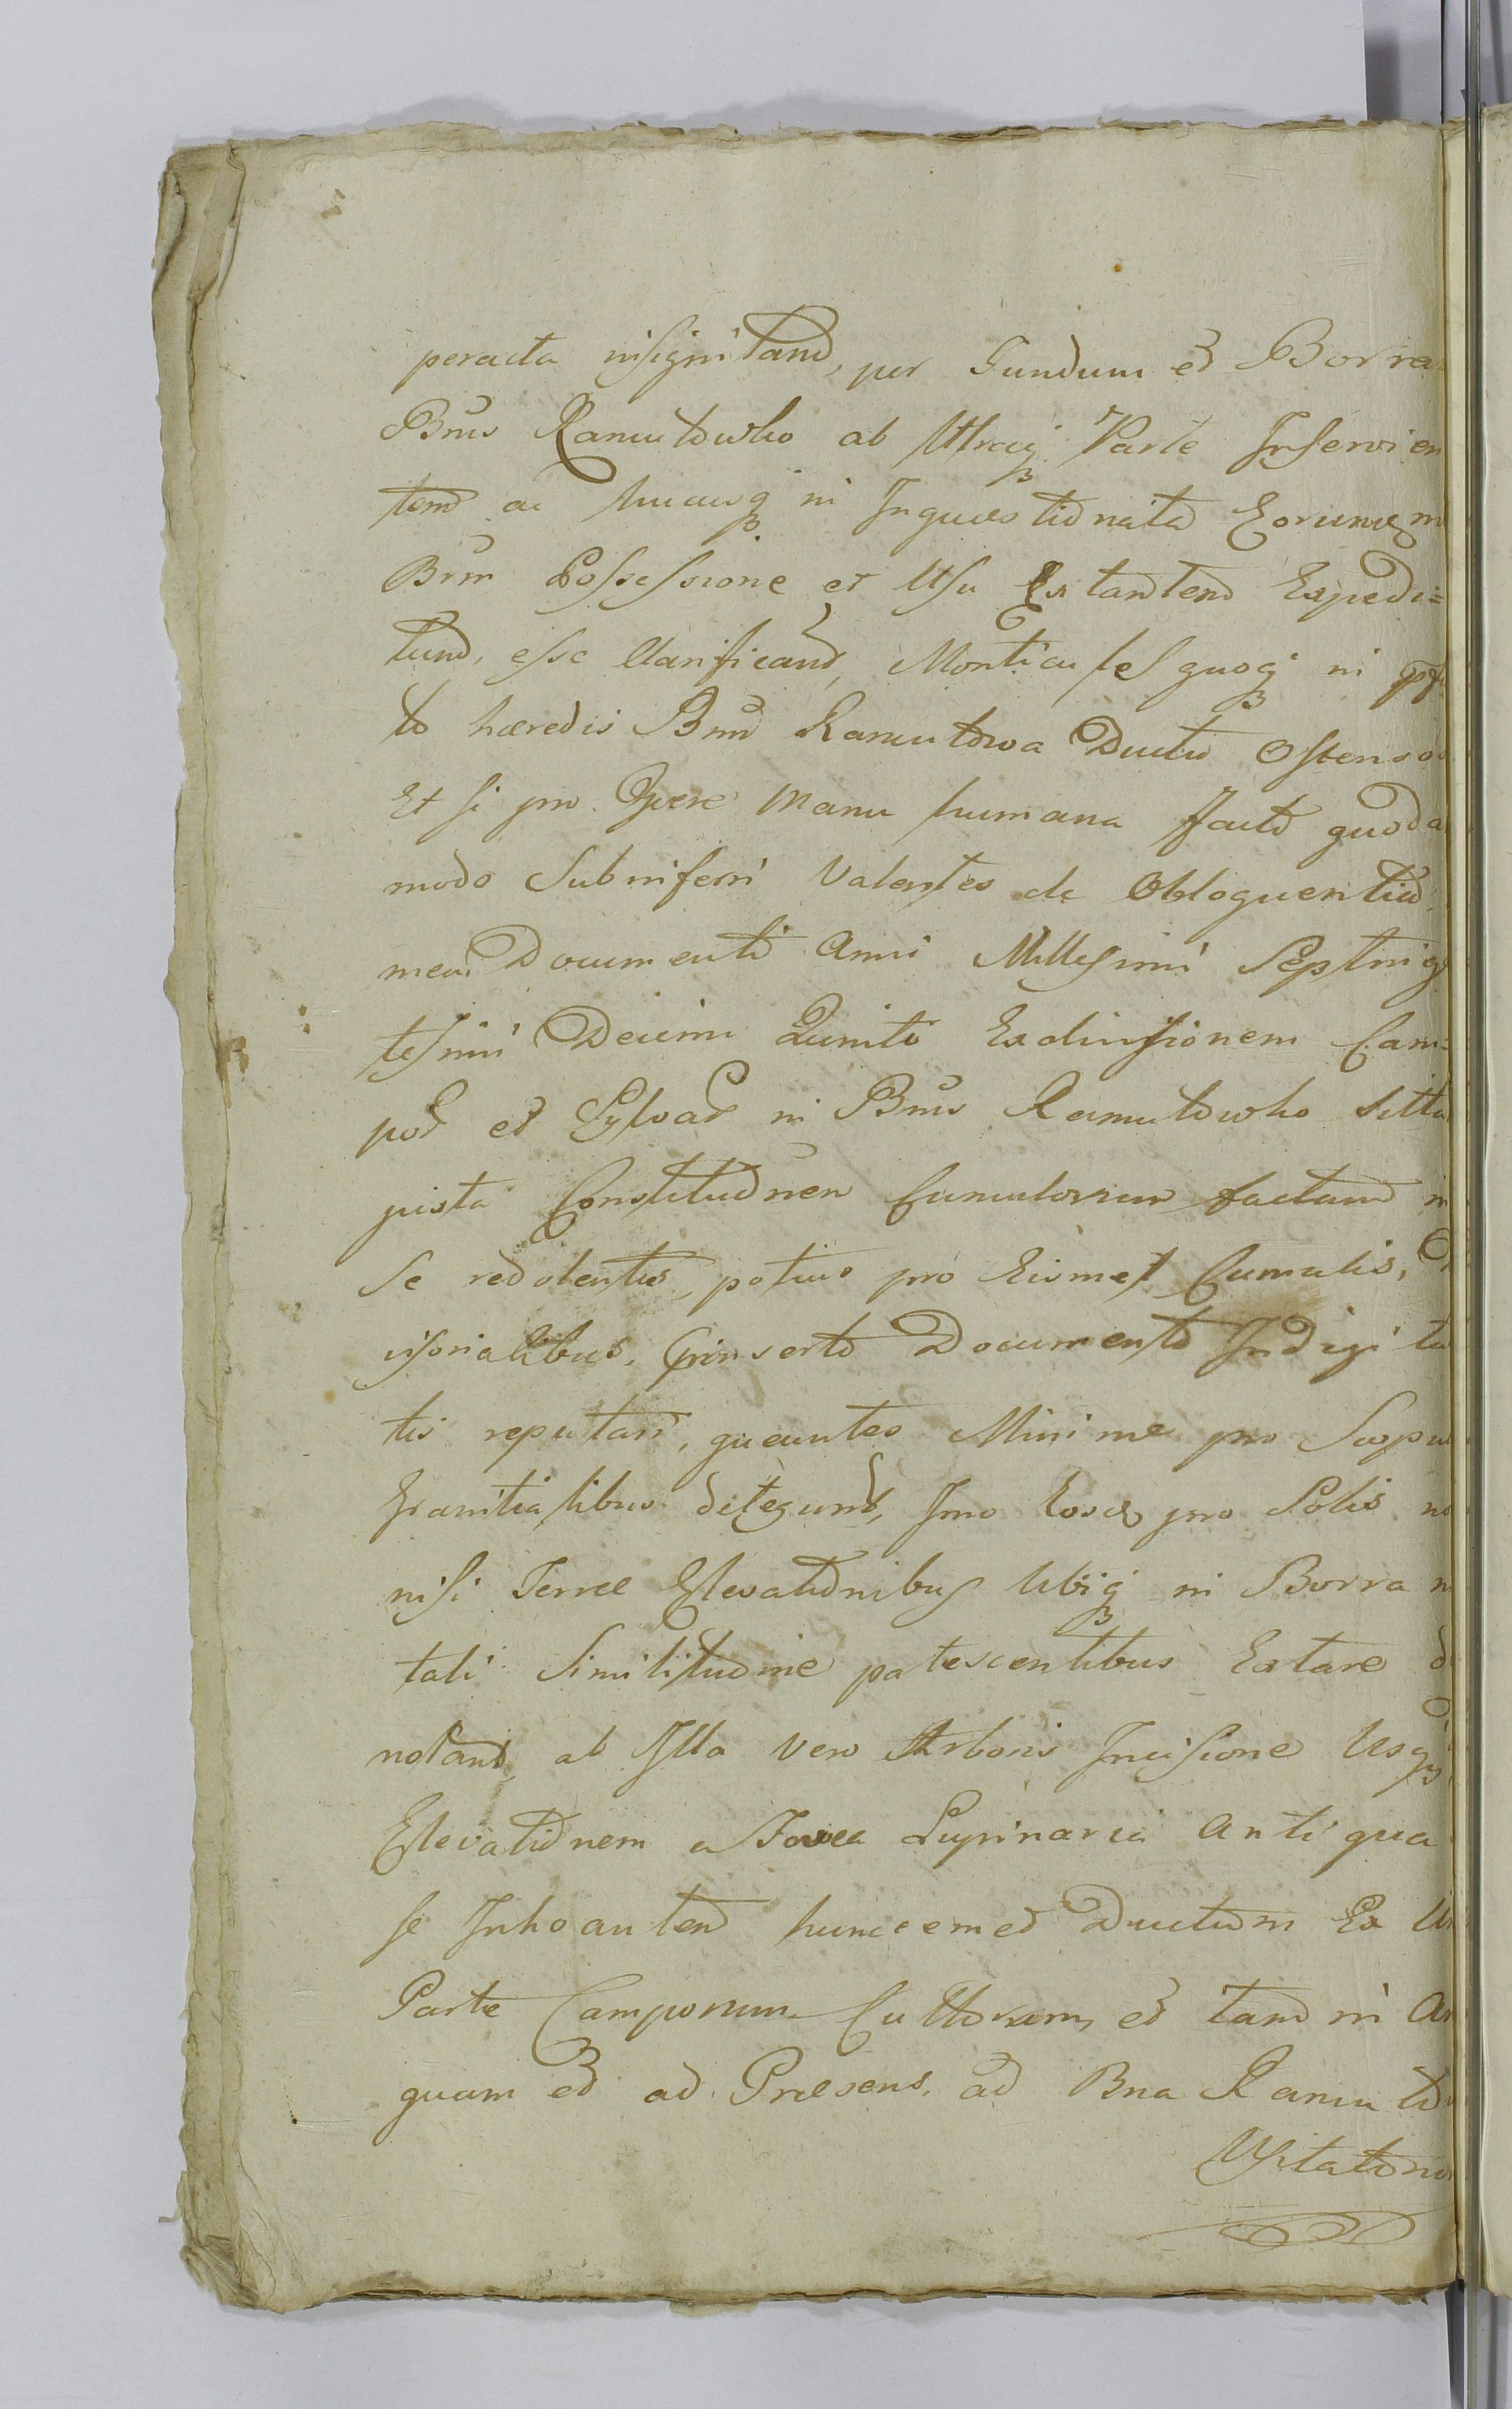 peracta insignitam, per Fundum et Borra
Bnis Ramutowko ab Utraq Parte Inservien
tem ac hucusq in Inquestionata Eorumdem
Bnm Possessione et Usu Extantem Expedi=
tum, esse Clarificant, Monticules quoq in
to hæredis Bnm Ramutowa Ductu Ostenso
Et si pro Opere Manu humana Facto quoda
modo Subinferri Valentes de Obloquentia
men Documenti Anni Millesimi Septing
tesimi Decimi Quinti Exdivisionem Cam=
por et Sylvar in Bnis Ramutowko sitta
juxta Constitutionem Cumulorum factam in
Se redolentes, potius pro Eismet Cumulis,
isorialibus, Prinserto Documento Indigita
tis reputari, queuntes Minime pro Scopu
Granitialibus detegunt, Imo Eosd pro Solis no
nisi Terræ Elevationibus Ubiq in Borra n
tali Similitudine patescentibus Extare d
notant, ab Illa vero Arboris Incisione Usq
Elevationem a Fovea Lupinaria Antiqua
se Inhoantem huncemet Ductum Ex U
Parte Camporum Cultorum et tam in An
quam et ad Præsens, ad Bna Ramuto